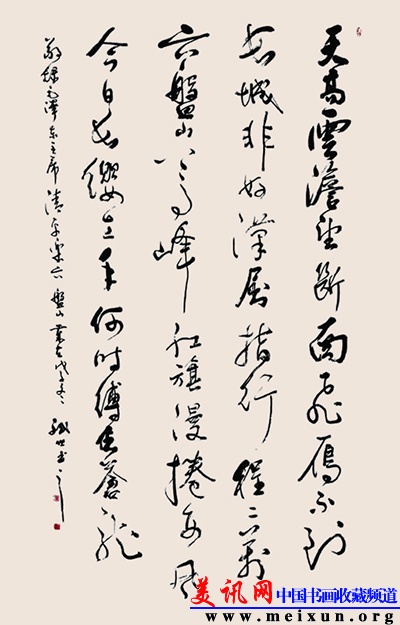 天高雲澹望斷南飛雁不到
長城非好漢屈指行程二萬
六盤山上高峰紅旗漫捲西風
今日長纓在手何時縛住蒼龍
敬録毛澤東主席清平樂六盤山
美讯网 中国书画收藏频道
www.meixun.org